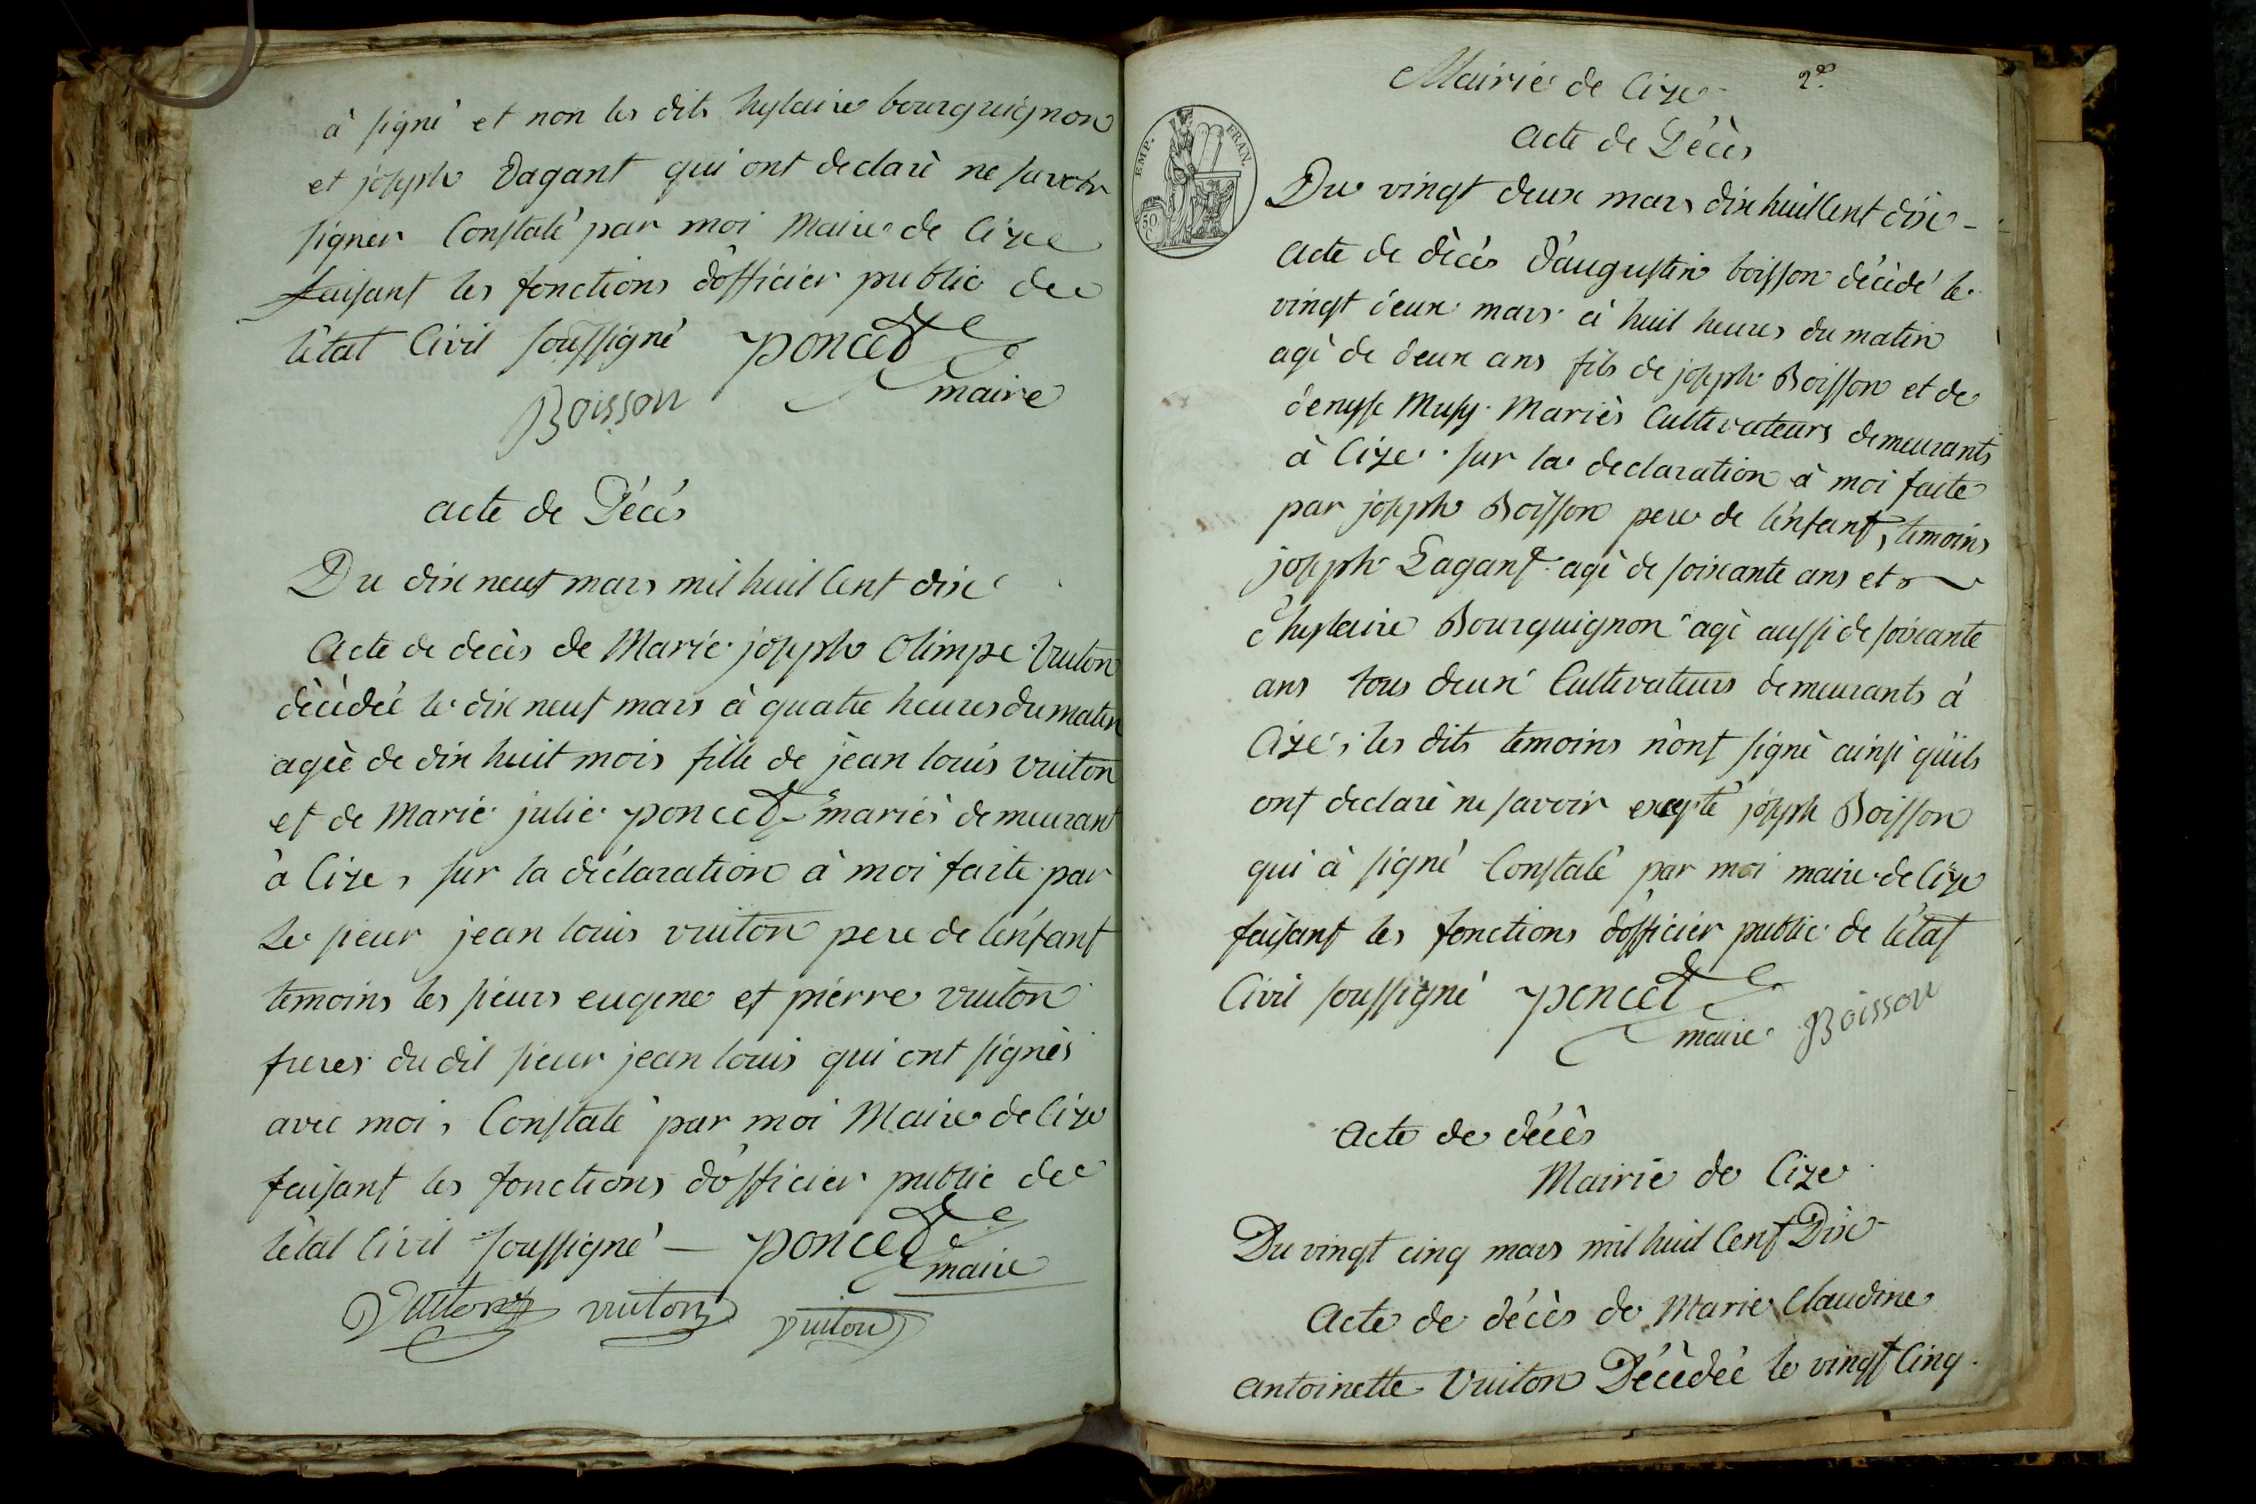 à signé et non les dits hylaire bourguignon
et joseph Dagant qui ont declaré ne savoir
signer Constaté par moi Maire de Cize
faisant les fonctions d'officier public de
l'état Civil soussigné poncet
maire
Boisson
acte de Décés
Du dix neuf mars mil huit Cent dix
Acte de decès de Marie joseph Olimpe Vuiton
dècèdée le dix neuf mars à quatre heures du matin
agèe de dix huit mois fille de jèan louis vuiton
et de Marie julie poncet mariés demeurant
à Cize, sur la déclaration à moi faite par
le sieur jean louis vuiton pere de l'enfant
temoins les sieurs eugene et pierre vuiton
freres du dit sieur jean louis qui ont signès
avec moi, Constaté par moi Maire de Cize
faisant les fonctions d'officier public de
l'état Civil soussigné — poncet
maire
Vuiton vuiton vuiton
Mairie de Cize 2e
acte de Décès
EMP. FRAN.
50
Du vingt deux mars dix huit Cent dix -
acte de dècès d'augustin boisson décédé le
vingt deux mars à huit heures du matin
agè de deux ans fils de joseph Boisson et de
denyse Musy Mariès Cultivateurs demeurants
à Cize. sur la declaration à moi faite
par joseph Boisson pere de l'enfant, temoins
joseph Dagant agè de soixante ans et
hylaire Bourguignon agè aussi de soixante
ans tous deux Cultivateurs demeurants à
Cize; les dits temoins n'ont signè ainsi qu'ils
ont declarè ne savoir excepté joseph Boisson
qui à signé Constaté par moi maire de Cize
faisant les fonctions d'officier public de l'état
Civil soussigné poncet
maire Boisson
Acte de décès
Mairie de Cize
Du vingt cinq mars mil huit Cent Dix
Acte de décès de Marie Claudine
antoinette Vuiton Décèdée le vingt Cinq